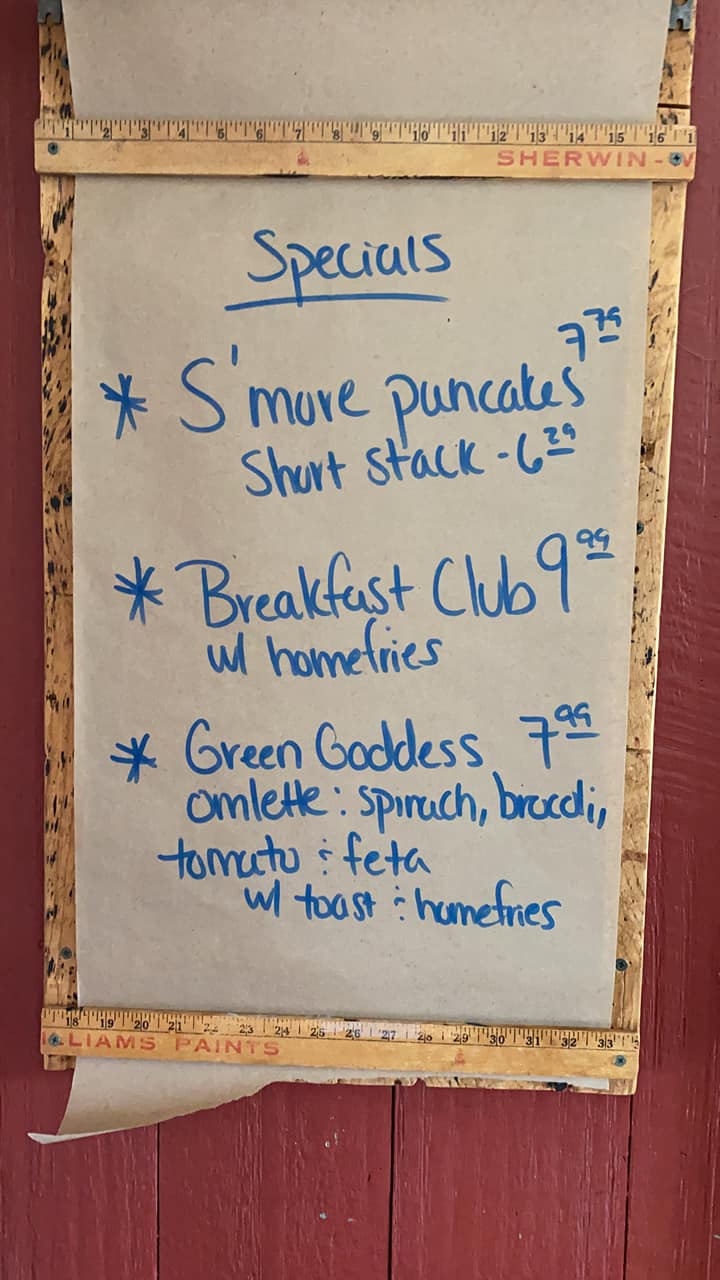 1 2 3 4 5 6 7 8 9 10 11 12 13 14 15 16
SHERWIN-W
Specials
7 79
* S'more pancakes
Short stack - 6 29
* Breakfast Club 9 99
w/ homefries
* Green Goddess 7 99
omlette: spinach, broccoli,
tomato & feta
w/ toast & homefries
18 19 20 21 22 23 24 25 26 27 28 29 30 31 32 33
LLIAMS PAINTS